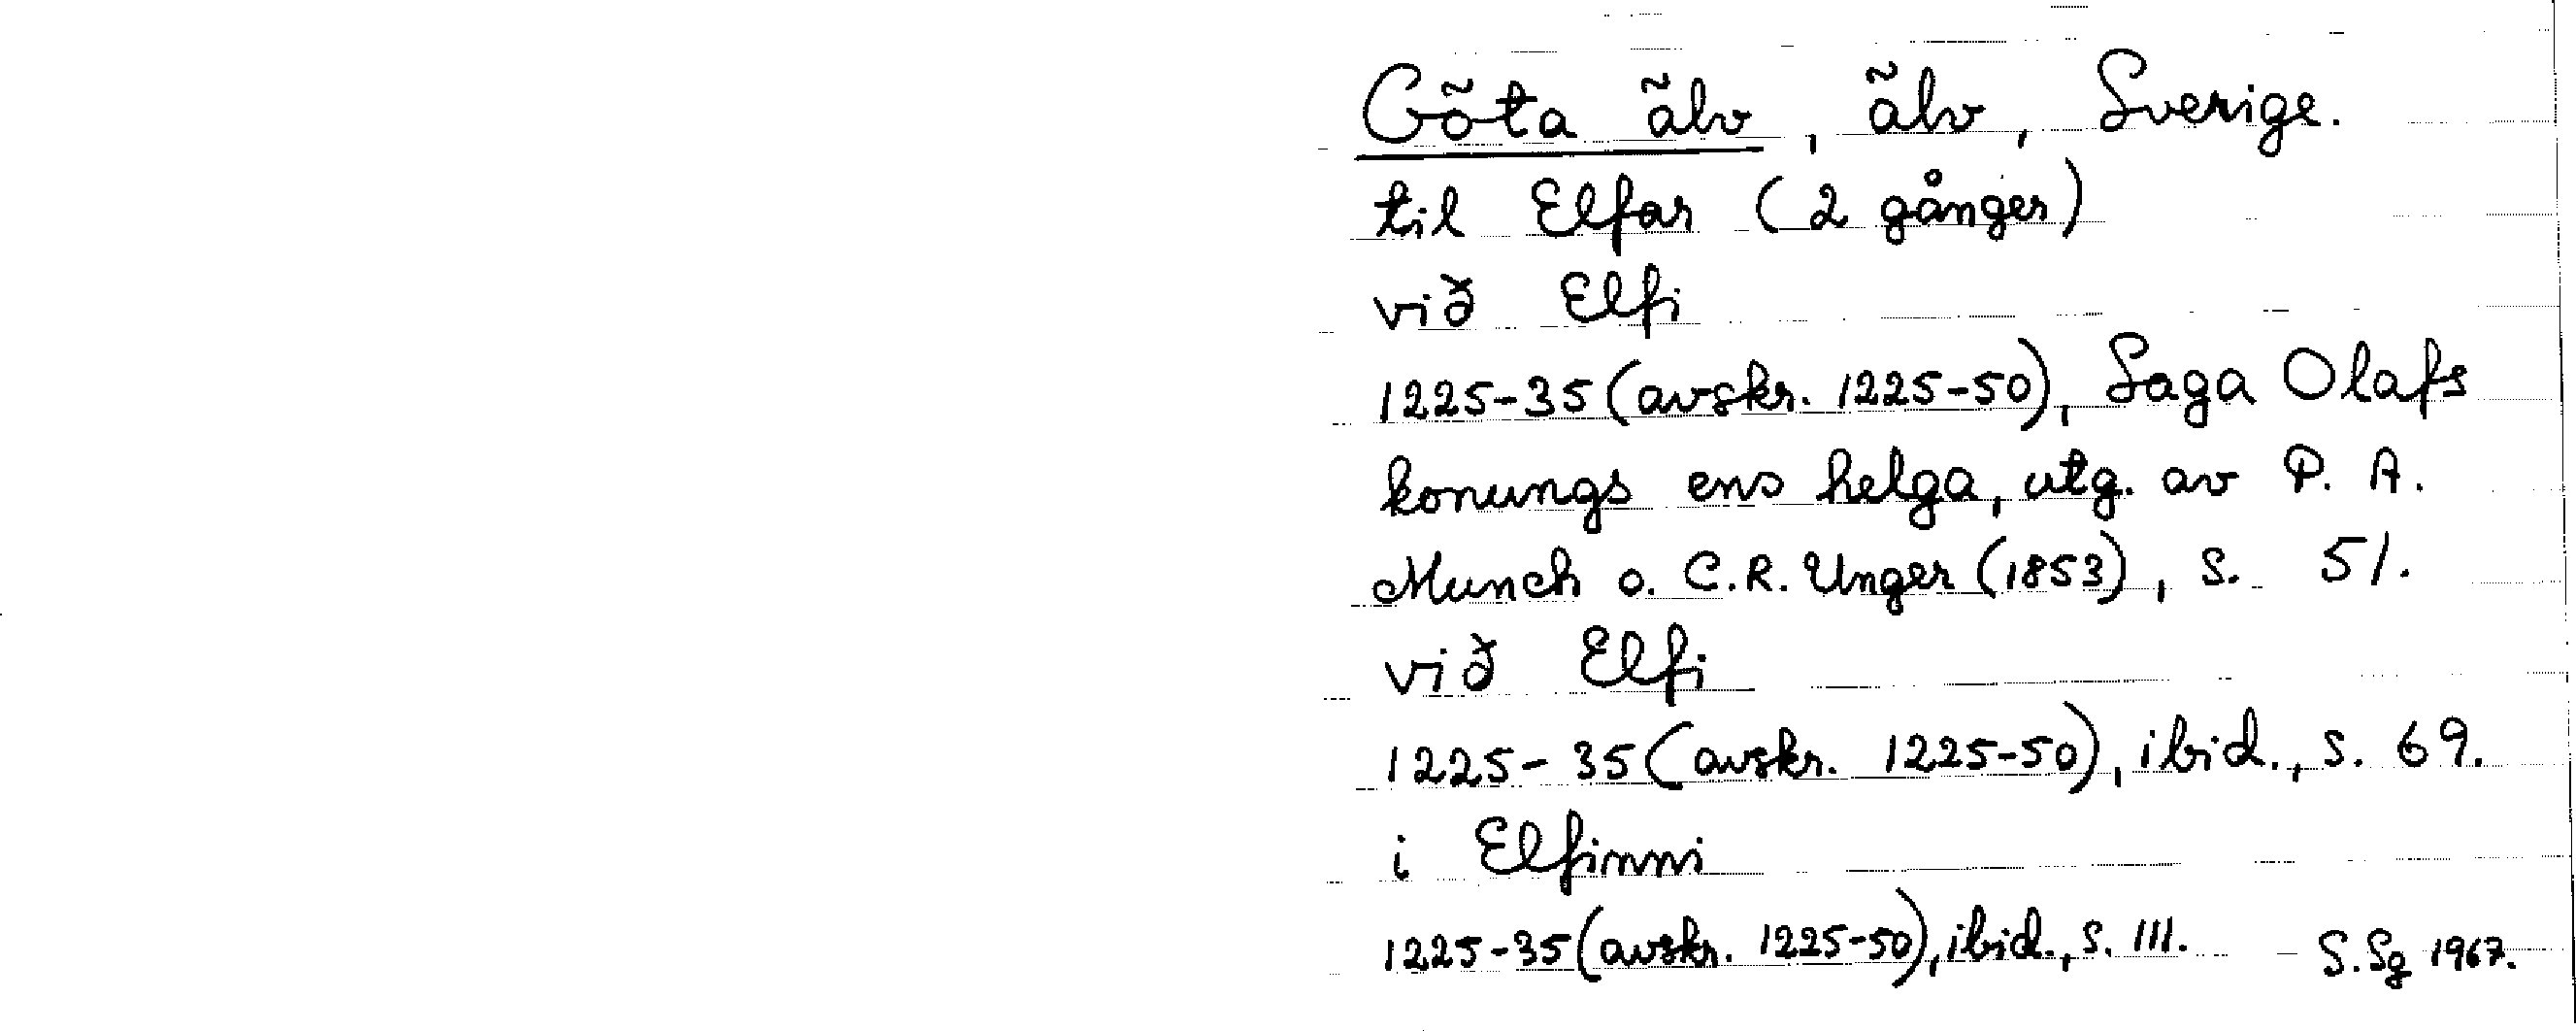 Göta älv, älv, Sverige.
til Elfar (2 gånger)
við Elfi
1225-35 (avskr. 1225-50), Saga Olafs
konungs ens helga, utg. av P. A.
Munch o. C.R. Unger (1853), s. 51.
við Elfi
1225-35 (avskr. 1225-50), ibid., s. 69.
i Elfinni
1225-35 (avskr. 1225-50), ibid., s. 111. S.Sg 1967.